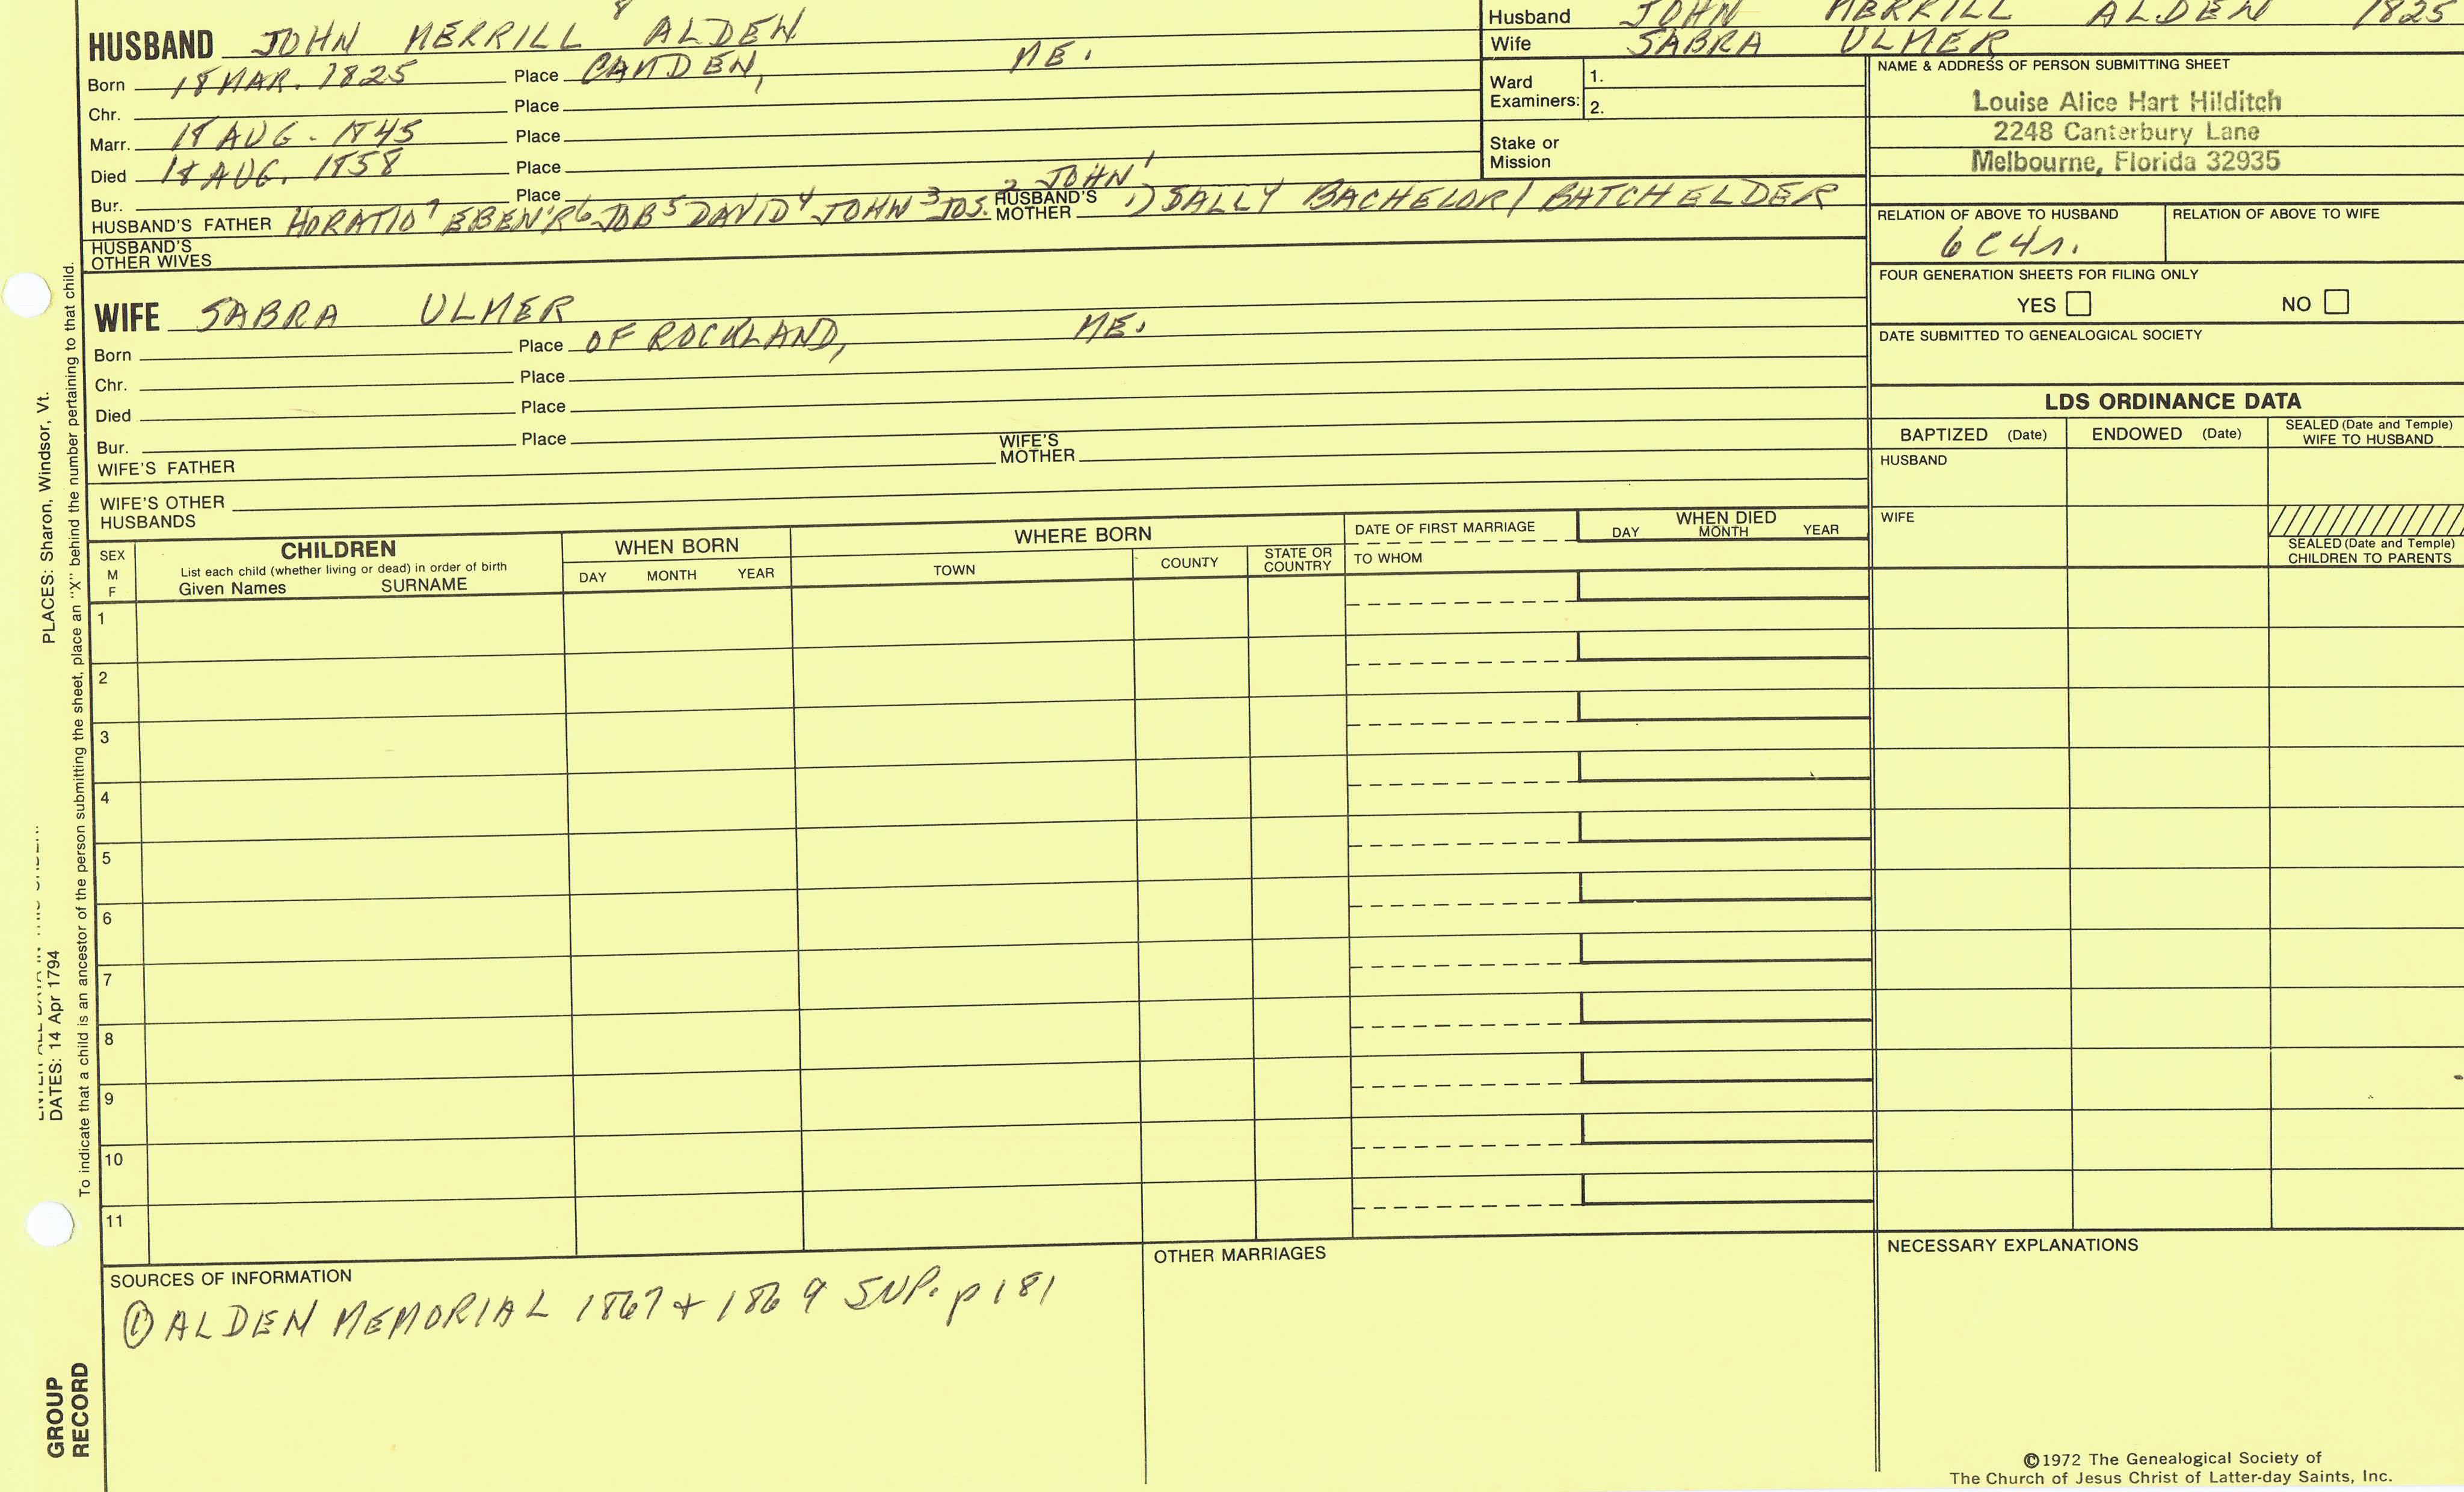 8
HUSBAND JOHN MERRILL ALDEN
Born 18 MAR. 1825 Place CAMDEN, ME.
Chr. Place
Marr. 18 AUG. 1845 Place
Died 18 AUG. 1858 Place
Bur. Place
HUSBAND'S FATHER HORATIO7 EBEN'R6 JOB5 DAVID4 JOHN3 JOS.2 JOHN1 HUSBAND'S MOTHER 1) SALLY BACHELOR/BATCHELDER
HUSBAND'S OTHER WIVES
WIFE SABRA ULMER
Born Place OF ROCKLAND, ME.
Chr. Place
Died Place
Bur. Place
WIFE'S FATHER WIFE'S MOTHER
WIFE'S OTHER HUSBANDS
Husband JOHN MERRILL ALDEN 1825
Wife SABRA ULMER
Ward Examiners: 1.
2.
Stake or Mission
NAME & ADDRESS OF PERSON SUBMITTING SHEET
Louise Alice Hart Hilditch
2248 Canterbury Lane
Melbourne, Florida 32935
RELATION OF ABOVE TO HUSBAND RELATION OF ABOVE TO WIFE
6C4r.
FOUR GENERATION SHEETS FOR FILING ONLY
YES NO
DATE SUBMITTED TO GENEALOGICAL SOCIETY
LDS ORDINANCE DATA
BAPTIZED (Date) ENDOWED (Date) SEALED (Date and Temple) WIFE TO HUSBAND
HUSBAND
WIFE
SEALED (Date and Temple) CHILDREN TO PARENTS
SEX M F
CHILDREN
List each child (whether living or dead) in order of birth
Given Names SURNAME
WHEN BORN
DAY MONTH YEAR
WHERE BORN
TOWN COUNTY STATE OR COUNTRY
DATE OF FIRST MARRIAGE
TO WHOM
WHEN DIED
DAY MONTH YEAR
1
2
3
4
5
6
7
8
9
10
11
SOURCES OF INFORMATION
① ALDEN MEMORIAL 1867 + 1869 SUP. p 181
OTHER MARRIAGES
NECESSARY EXPLANATIONS
©1972 The Genealogical Society of
The Church of Jesus Christ of Latter-day Saints, Inc.
PLACES: Sharon, Windsor, Vt.
DATES: 14 Apr 1794
To indicate that a child is an ancestor of the person submitting the sheet, place an "X" behind the number pertaining to that child.
GROUP
RECORD